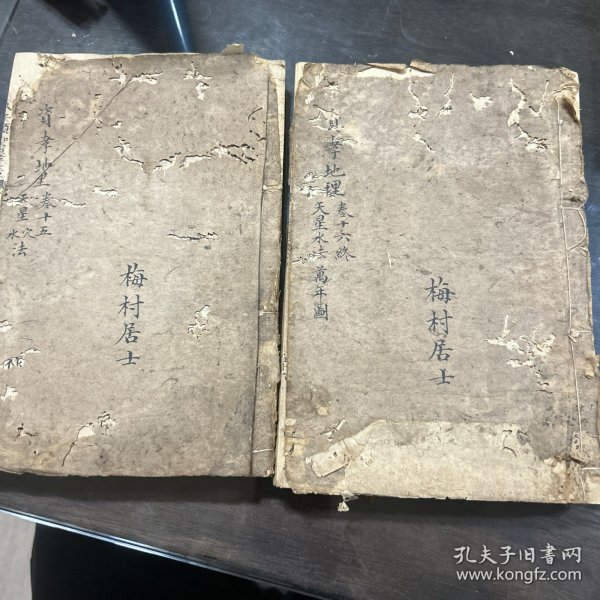 資孝地 卷十五
天星穴
水法
梅村居士
孝地理 卷十六終
天星水法 萬年圖
梅村居士
孔夫子旧书网
www.kongfz.com